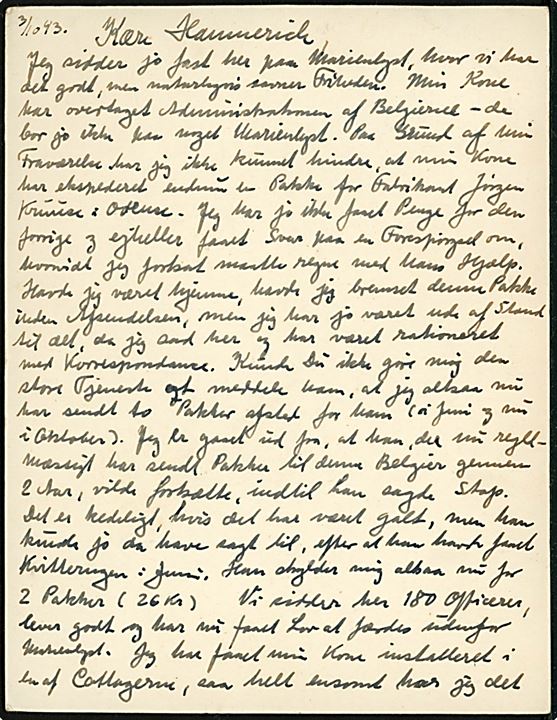 3/10 43. Kære Hammerich
Jeg sidder jo fast her paa Marienlyst, hvor vi har
det godt, men naturligvis savner Friheden. Min Kone
har overtaget Administrationen af Belgierne – de
bor jo ikke paa noget Marienlyst. Paa Grund af min
Fraværelse har jeg ikke kunnet hindre, at min Kone
har ekspederet endnu en Pakke for Fabrikant Jørgen
Kruuse i Odense. Jeg har jo ikke faaet Penge for den
forrige og ejheller faaet Svar paa en Forespørgsel om,
hvorvidt jeg fortsat maatte regne med hans Hjælp.
Havde jeg været hjemme, havde jeg bremset denne Pakke
inden Afsendelsen, men jeg har jo været ude af Stand
til det, da jeg sad her og har været rationeret
med Korrespondance. Kunde Du ikke gøre mig den
store Tjeneste at meddele ham, at jeg altsaa nu
har sendt to Pakker afsted for ham (i Juni og nu
i Oktober). Jeg er gaaet ud fra, at han, der nu regel-
mæssigt har sendt Pakker til denne Belgier gennem
2 Aar, vilde fortsætte, indtil han sagde Stop.
Det er kedeligt, hvis det har været galt, men han
kunde jo da have sagt til, efter at han havde faaet
Kvitteringen i Juni. Han skylder mig altsaa nu for
2 Pakker (26 Kr) Vi sidder her 180 Officerer,
lever godt og har nu faaet Lov at færdes udenfor
Marienlyst. Jeg har faaet min Kone installeret i
en af Cottagerne, saa helt ensomt har jeg det